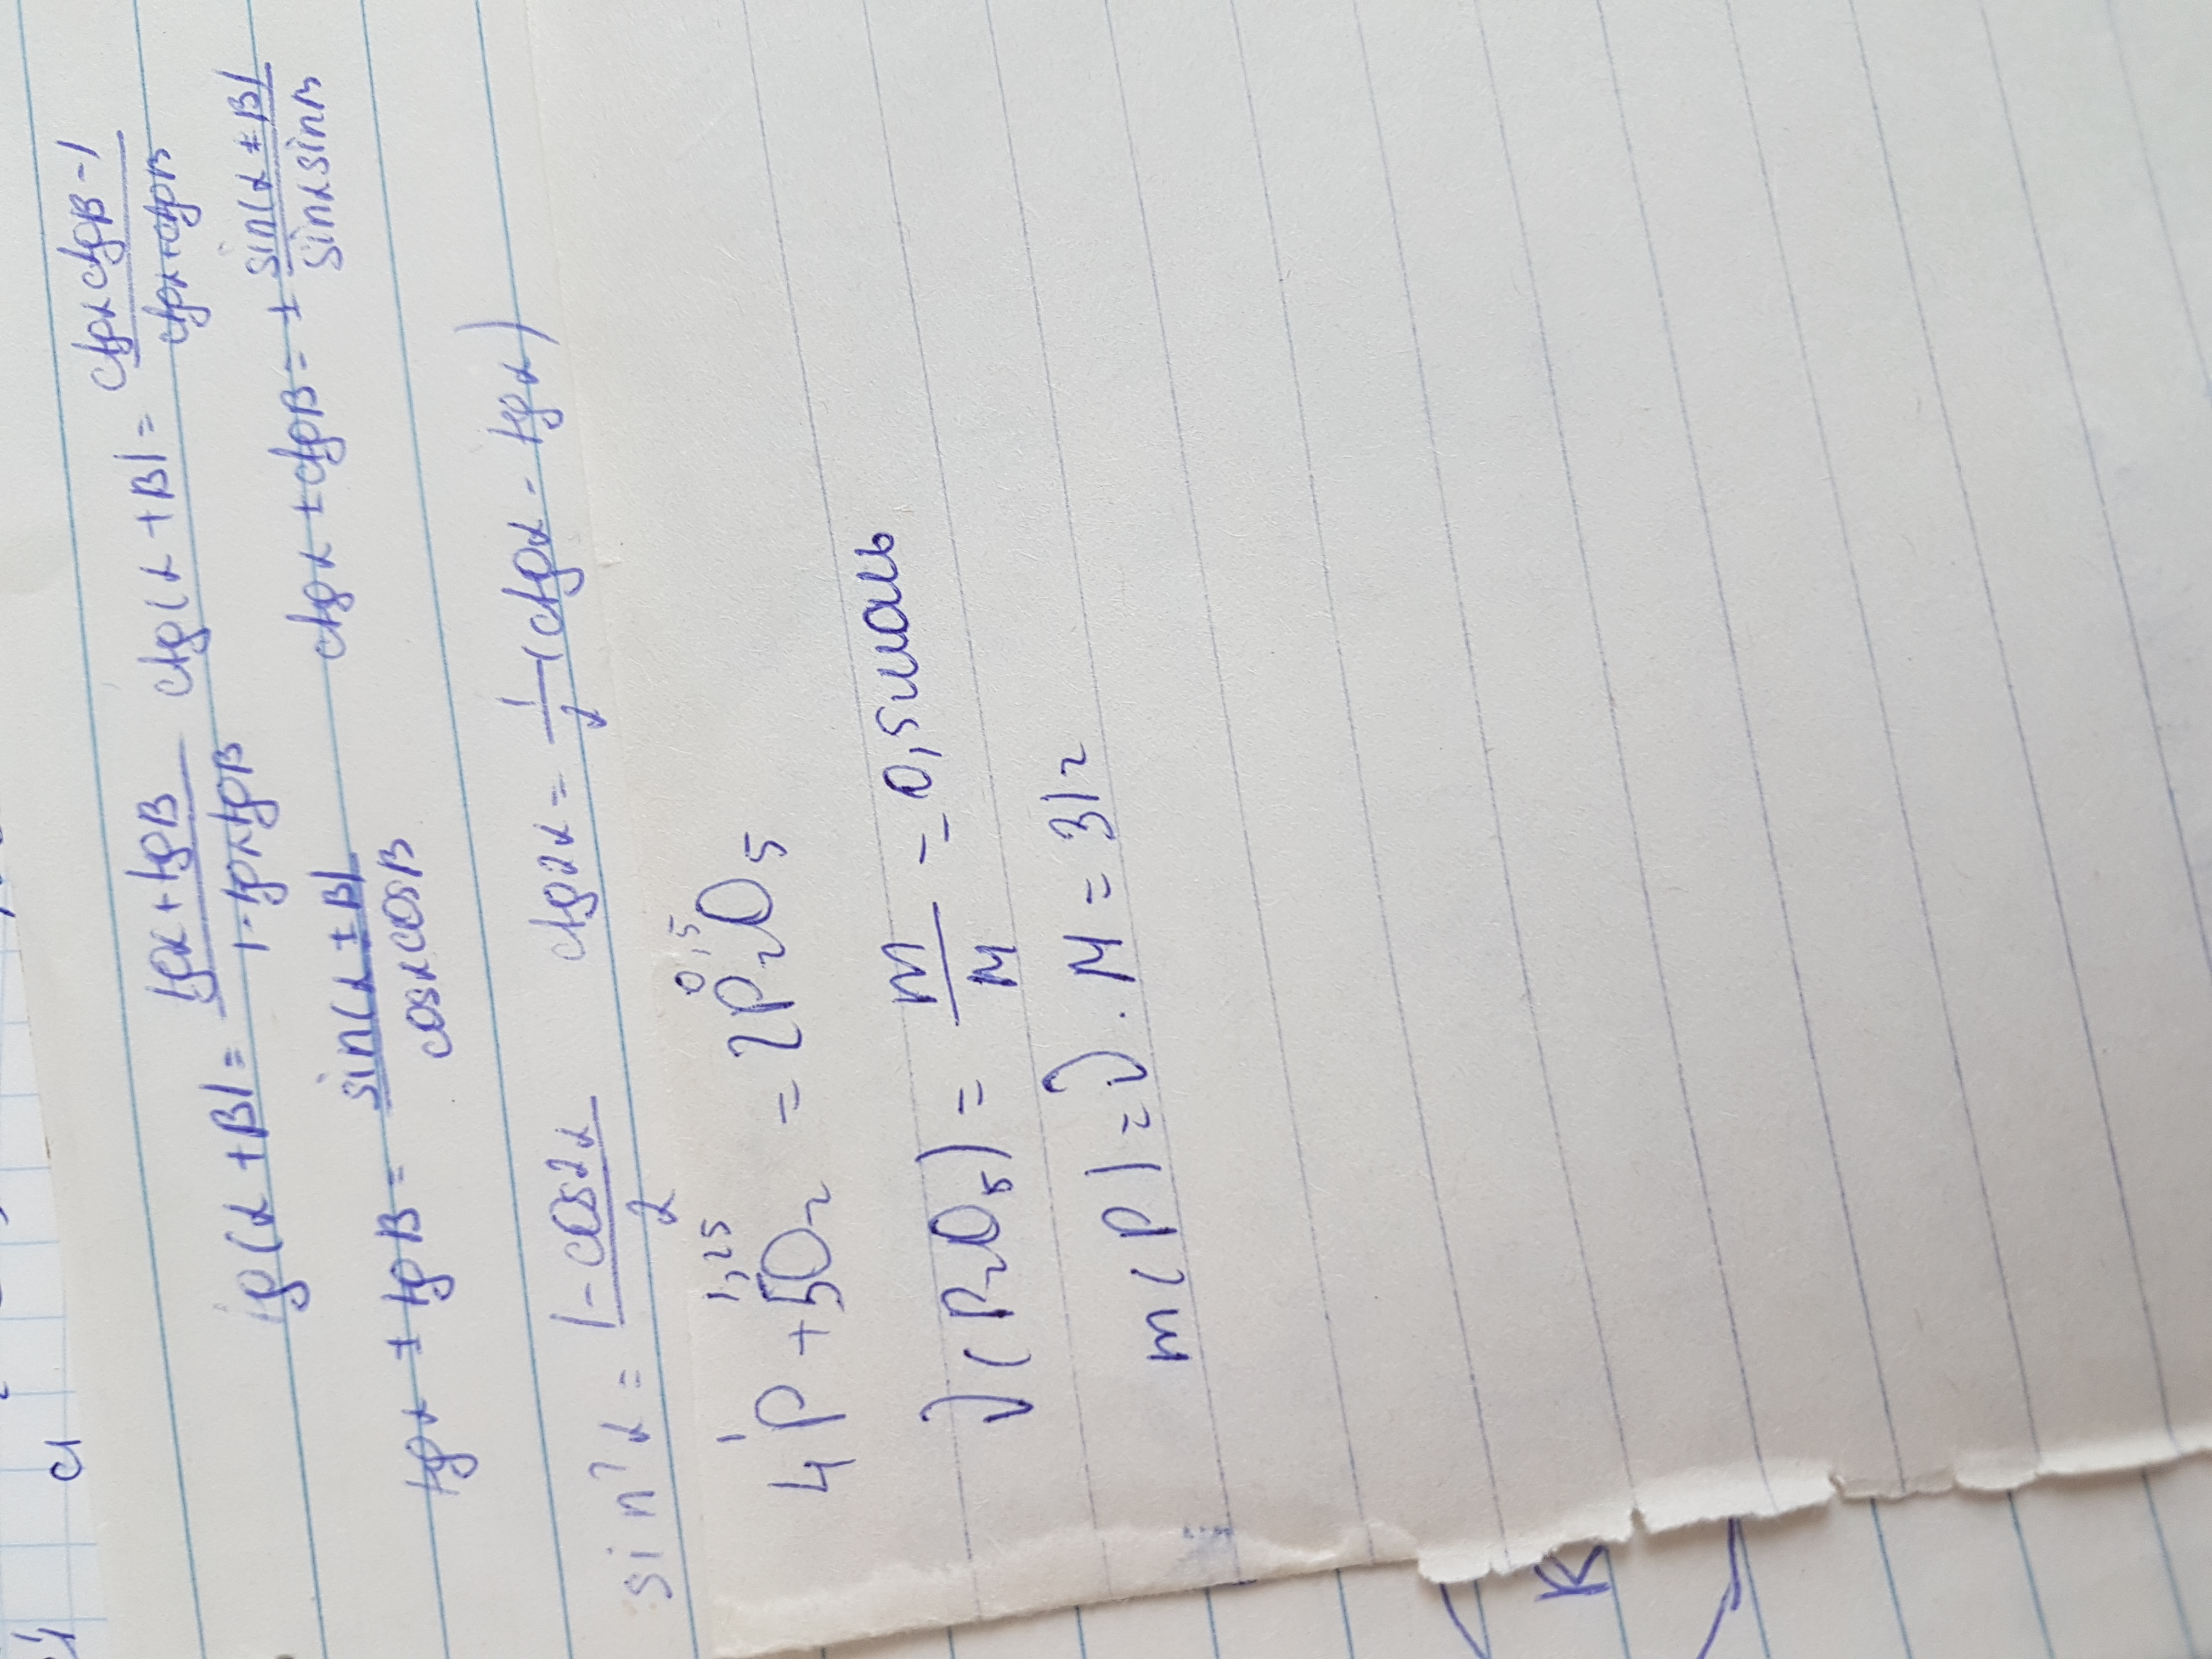 tg(α+β)= tgα+tgβ / 1-tgαtgβ ctg(α+β)= ctgαctgβ-1 / ctgα+ctgβ
tgα ± tgβ = sin(α±β) / cosαcosβ ctgα ± ctgβ = ± sin(α±β) / sinαsinβ
sin²α = 1-cos2α / 2 ctg2α = 1/2 (ctgα - tgα)
1 1,25 0,5
4P + 5O₂ = 2P₂O₅
ν(P₂O₅) = m/M = 0,5моль
m(P)=ν·M=31г
К